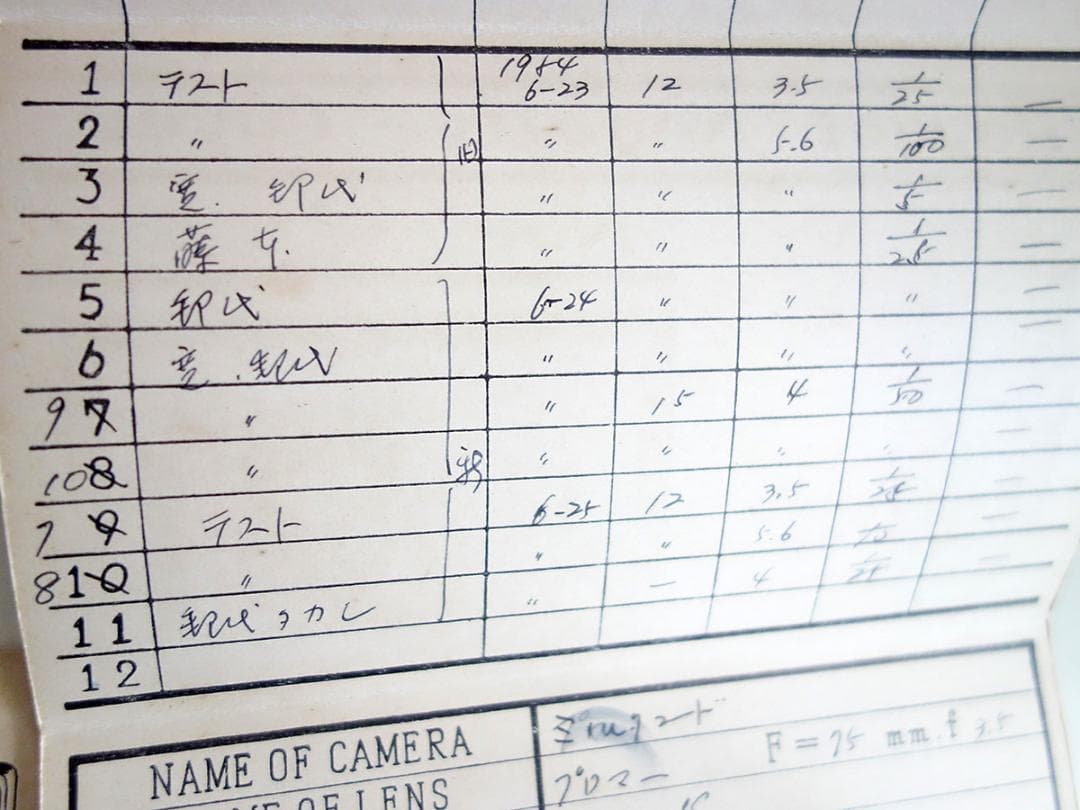 1 テスト 1984 6-23 12 3.5 1/25 —
2 〃 旧 〃 〃 5.6 1/100 —
3 〃 〃 〃 1/5 —
4 藤本 〃 〃 〃 1/25 —
5 6-24 〃 〃 〃 —
6 〃 〃 〃 〃 —
9 7 〃 〃 15 4 1/50 —
10 8 〃 新 〃 〃 〃 〃 —
7 9 テスト 6-25 12 3.5 1/25 —
8 10 〃 〃 〃 5.6 —
11 タカシ 〃 — 4 1/25 —
12
NAME OF CAMERA
F = 75 mm. f 3.5
OF LENS プロマー